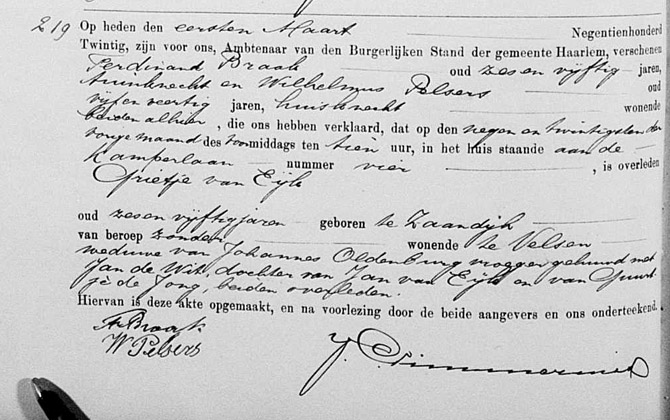 219 Op heden den eersten Maart Negentienhonderd
Twintig, zijn voor ons, Ambtenaar van den Burgerlijken Stand der gemeente Haarlem, verschenen
Ferdinand Braak oud zes en vijftig jaren,
tuinknecht en Wilhelmus Pelsers oud
vijf en veertig jaren, huisknecht wonende
beiden alhier, die ons hebben verklaard, dat op den negen en twintigsten der
vorige maand des voormiddags ten tien uur, in het huis staande aan de
Kamperlaan nummer vier, is overleden
Grietje van Eijk
oud zes en vijftig jaren geboren te Zaandijk
van beroep zonder wonende te Velsen
weduwe van Johannes Oldenburg vroeger gehuwd met
Jan de Wit, dochter van Jan van Eijk en van Guurt-
je de Jong, beiden overleden.
Hiervan is deze akte opgemaakt, en na voorlezing door de beide aangevers en ons onderteekend.
F Braak
W Pelsers